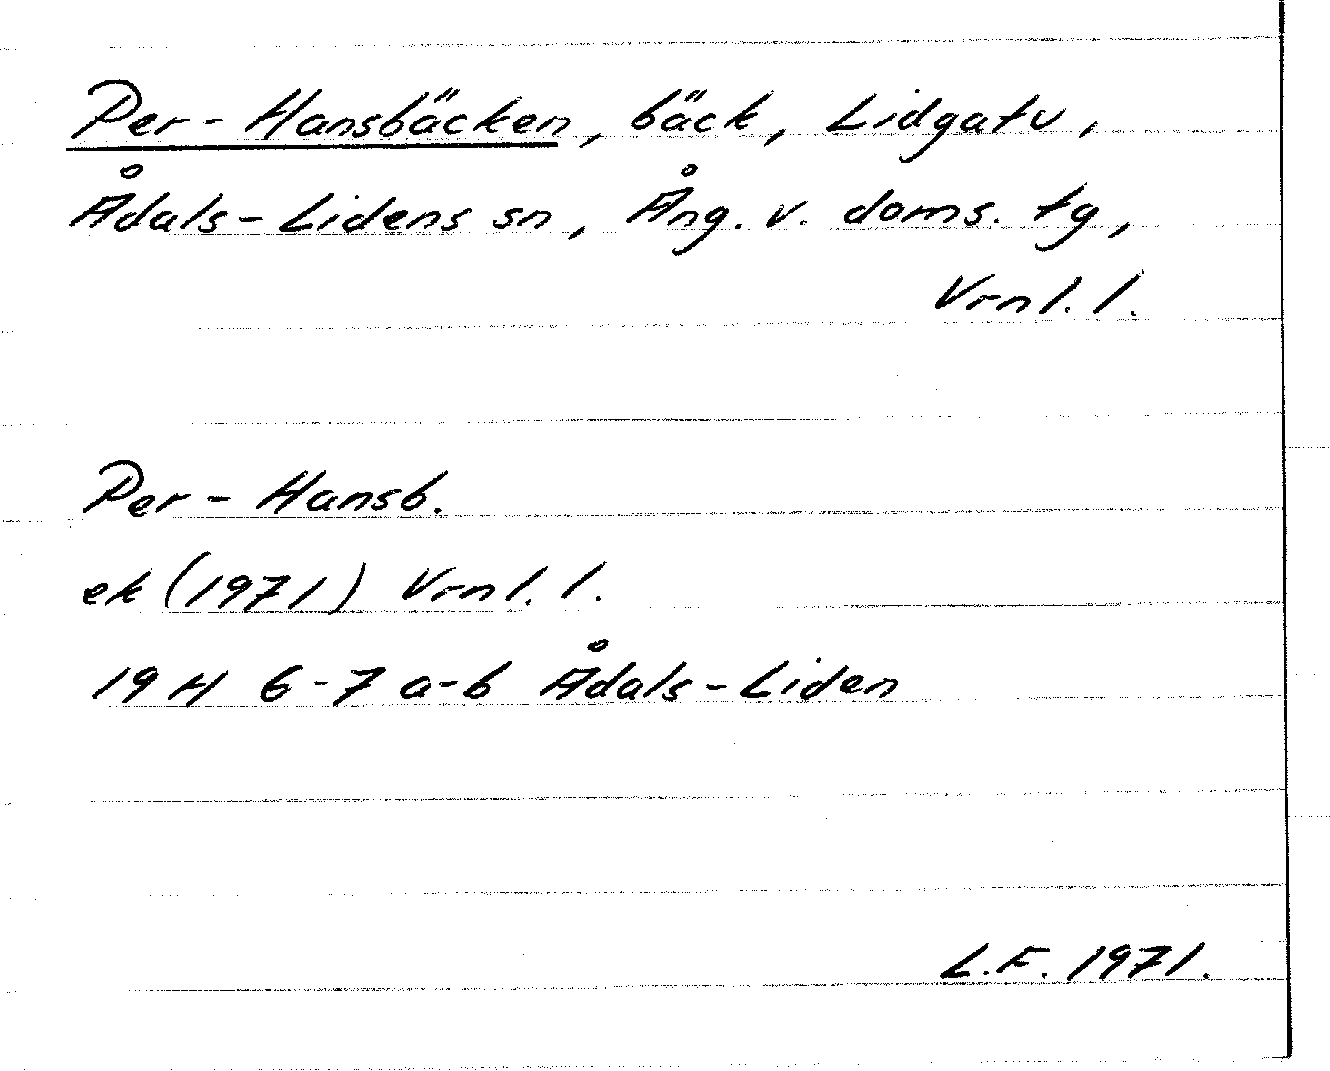 Per-Hansbäcken, bäck, Lidgatu,
Ådals-Lidens sn, Ång. v. doms. tg,
Vrnl. l.
Per-Hansb.
ek (1971) Vrnl. l.
19 H 6-7 a-b Ådals-Liden
L.F. 1971.